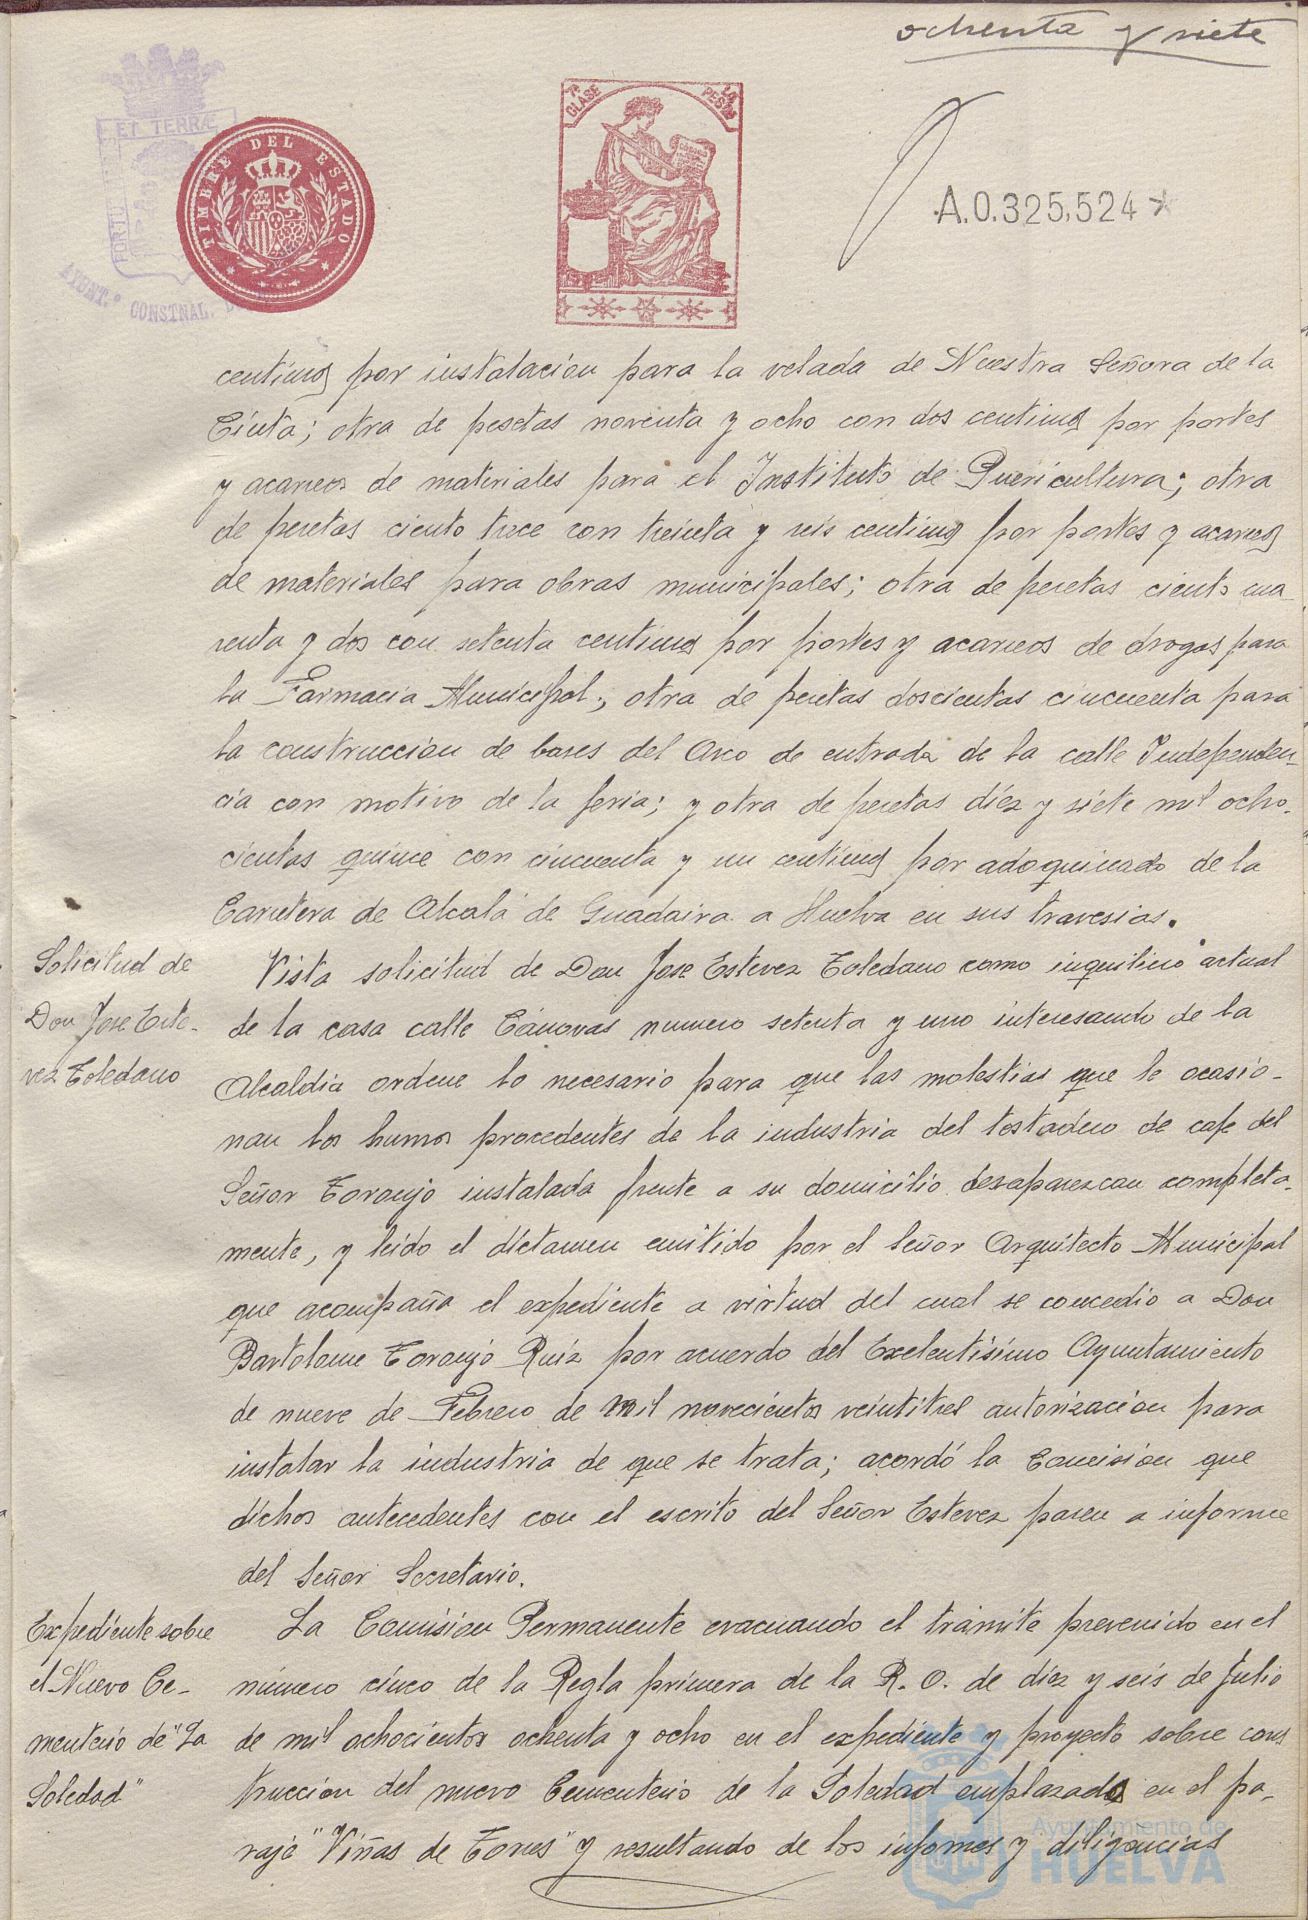 ochenta y siete
ET TERRÆ
TIMBRE DEL ESTADO
AYUNT.º CONSTNAL.
7ª CLASE
PESETAS
A.0.325,524*
centimos por instalacion para la velada de Nuestra Señora de la
Cinta; otra de pesetas noventa y ocho con dos centimos por portes
y acarreos de materiales para el Instituto de Puericultura; otra
de pesetas ciento trece con treinta y seis centimos por portes y acarreos
de materiales para obras municipales; otra de pesetas ciento cua-
renta y dos con setenta centimos por portes y acarreos de drogas para
la Farmacia Municipal; otra de pesetas doscientas cincuenta para
la construccion de bases del Arco de entrada de la calle Independen-
cia con motivo de la feria; y otra de pesetas diez y siete mil ocho-
cientas quince con cincuenta y un centimos por adoquinado de la
Carretera de Alcalá de Guadaira a Huelva en sus travesias.
Solicitud de
Don Jose Este-
vez Toledano
Vista solicitud de Don Jose Estevez Toledano como inquilino actual
de la casa calle Cánovas numero setenta y uno interesando de la
Alcaldia ordene lo necesario para que las molestias que le ocasio-
nan los humos procedentes de la industria del tostadero de cafe del
Señor Toronjo instalada frente a su domicilio desaparezcan completa-
mente, y leido el dictamen emitido por el Señor Arquitecto Municipal
que acompaña el expediente a virtud del cual se concedio a Don
Bartolome Toronjo Ruiz por acuerdo del Exelentisimo Ayuntamiento
de nueve de Febrero de mil novecientos veintitres autorizacion para
instalar la industria de que se trata; acordó la Comision que
dichos antecedentes con el escrito del Señor Estevez pasen a informe
del Señor Secretario.
Expediente sobre
el Nuevo Ce-
menterio de "La
Soledad"
La Comision Permanente evacuando el trámite prevenido en el
número cinco de la Regla primera de la R. O. de diez y seis de Julio
de mil ochocientos ochenta y ocho en el expediente y proyecto sobre cons
truccion del nuevo Cementerio de la Soledad emplazado en el pa-
raje "Viñas de Torres" y resultando de los informes y diligencias
Ayuntamiento de
HUELVA